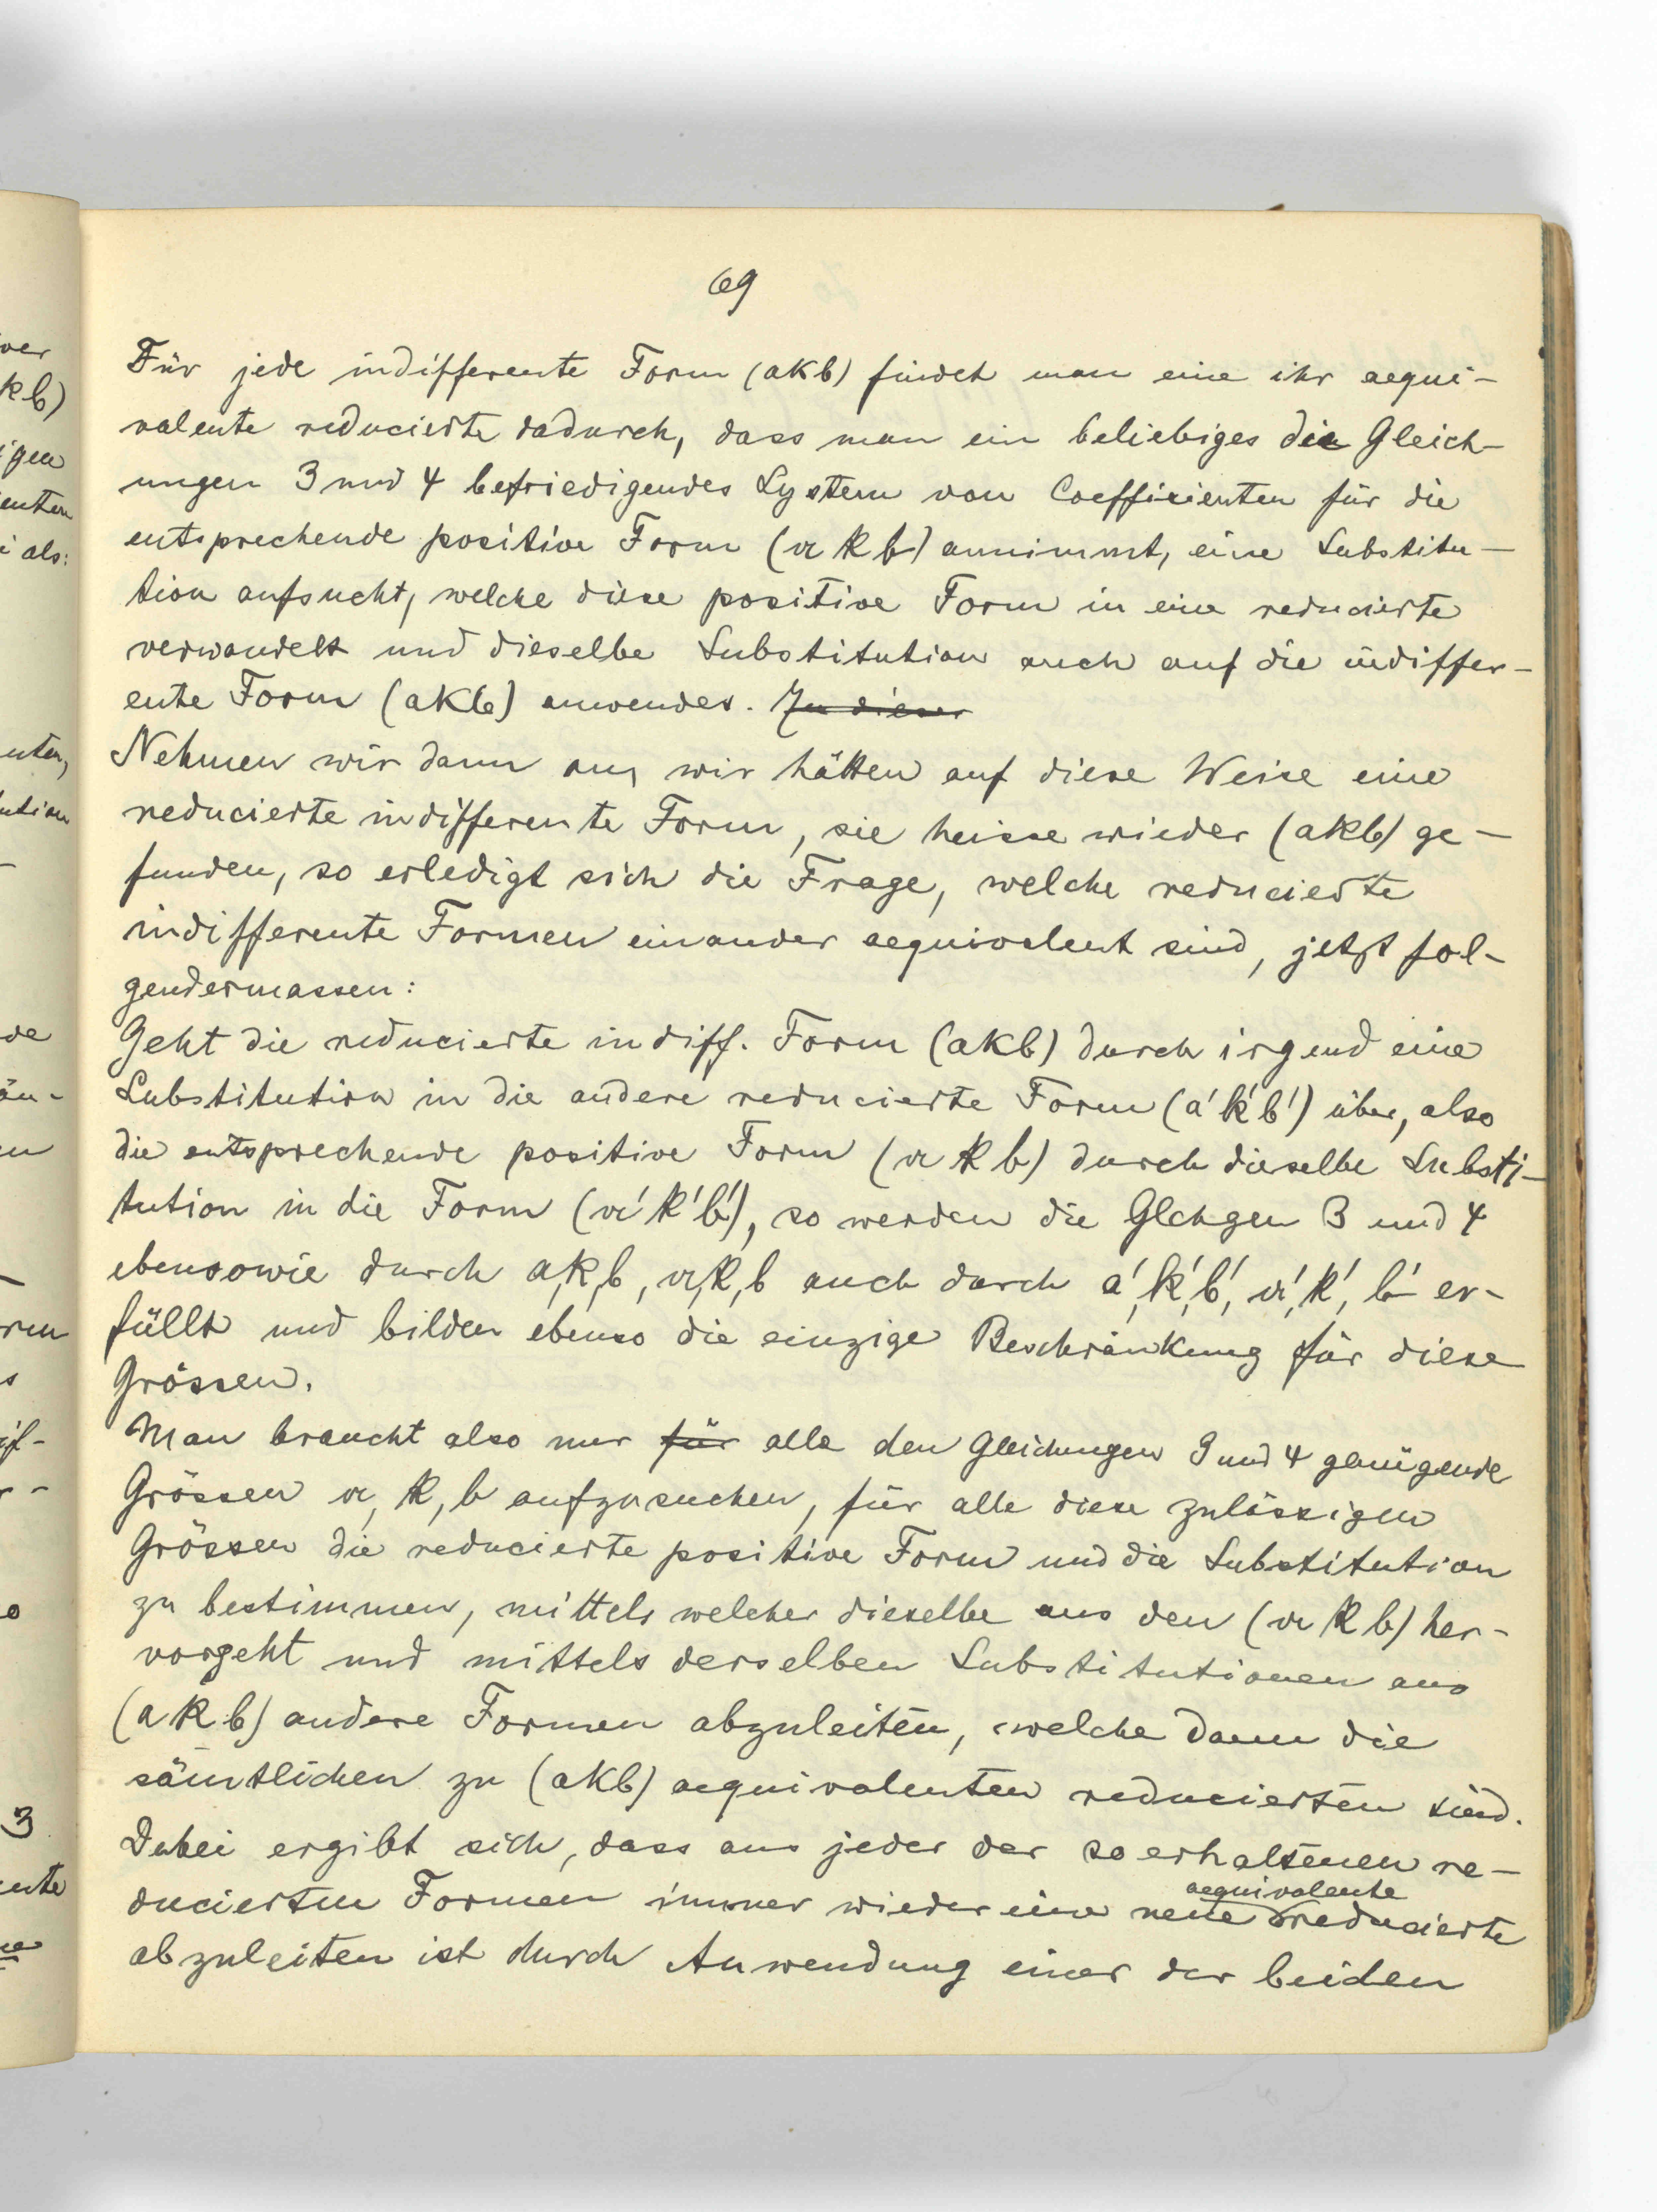 69
Für jede indifferente Form (akb) findet man eine ihr aequi-
valente reducierte dadurch, dass man ein beliebiges die Gleich-
ungen 3 und 4 befriedigendes System von Coefficienten für die
entsprechende positive Form (𝔞 k b) annimmt, eine Substitu-
tion aufsucht, welche diese positive Form in eine reducierte
verwandelt und dieselbe Substitution auch auf die indiffer-
ente Form (akb) anwendet. In dieser
Nehmen wir dann an, wir hätten auf diese Weise eine
reducierte indifferente Form, sie heisse wieder (akb) ge-
funden, so erledigt sich die Frage, welche reducierte
indifferente Formen einander aequivalent sind, jetzt fol-
gendermassen:
Geht die reducierte indiff. Form (akb) durch irgend eine
Substitution in die andere reducierte Form (a'k'b') über, also
die entsprechende positive Form (𝔞 k b) durch dieselbe Substi-
tution in die Form (𝔞'k'b'), so werden die Glchgen 3 und 4
ebensowie durch a,k,b, 𝔞,k,b auch durch a',k',b', 𝔞',k',b' er-
füllt und bilden ebenso die einzige Beschränkung für diese
Grössen.
Man braucht also nur für alle den Gleichungen 3 und 4 genügende
Grössen 𝔞, k, b aufzusuchen, für alle diese zulässigen
Grössen die reducierte positive Form und die Substitution
zu bestimmen, mittels welcher dieselbe aus den (𝔞 k b) her-
vorgeht und mittels derselben Substitutionen aus
(a k b) andere Formen abzuleiten, welche dann die
sämtlichen zu (akb) aequivalenten reducierten sind.
Dabei ergibt sich, dass aus jeder der so erhaltenen re-
ducierten Formen immer wieder eine neue aequivalente reducierte
abzuleiten ist durch Anwendung einer der beiden